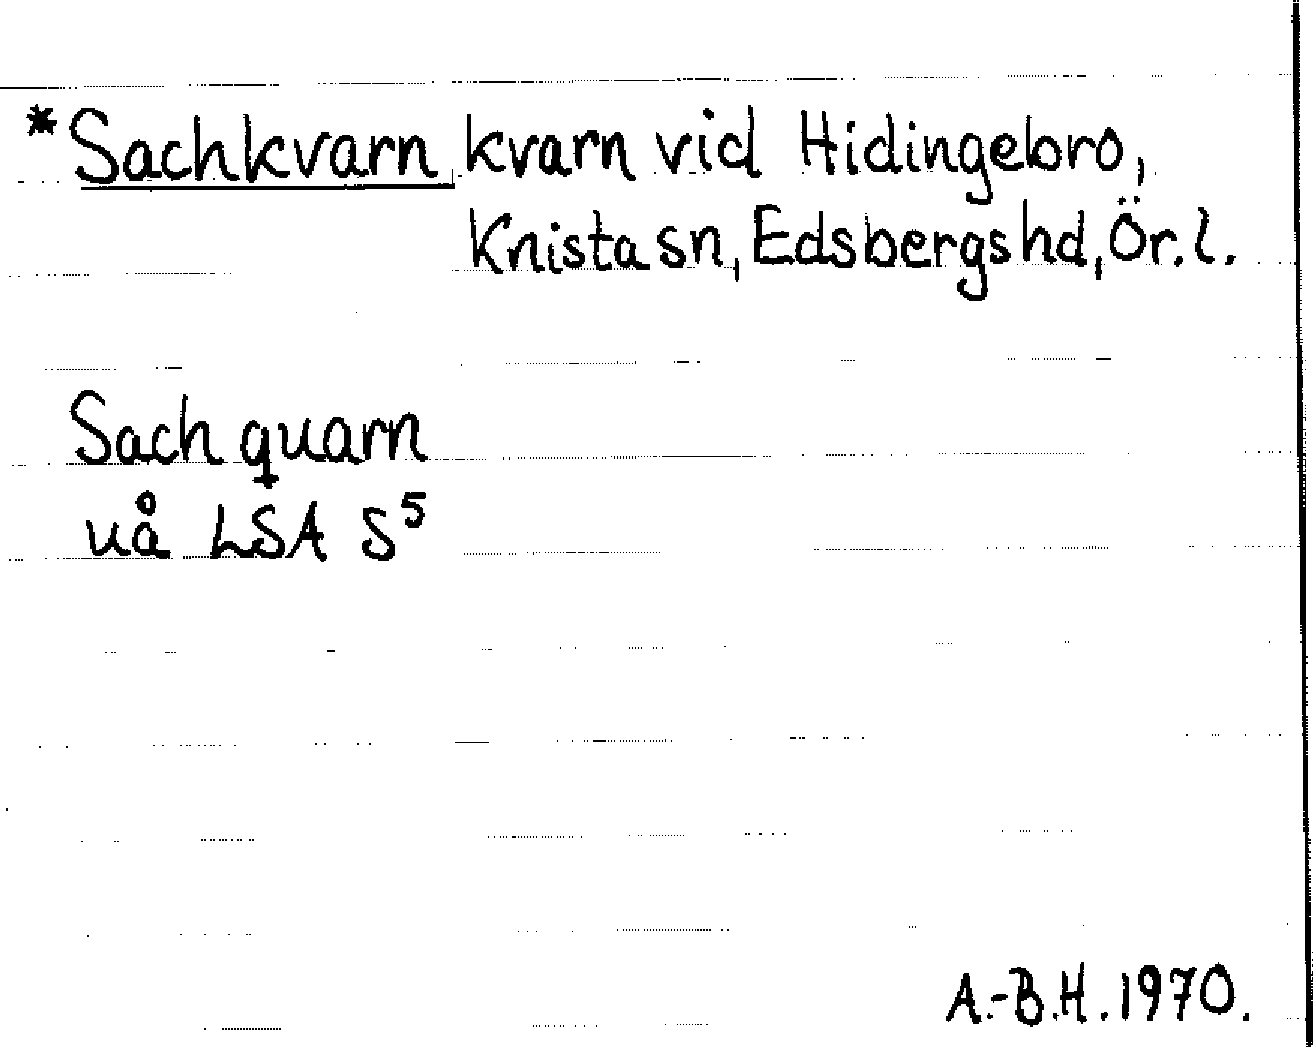 *Sachkvarn, kvarn vid Hidingebro,
Knista sn, Edsbergs hd, Ör. l.
Sach quarn
uå LSA S5
A.-B.H. 1970.